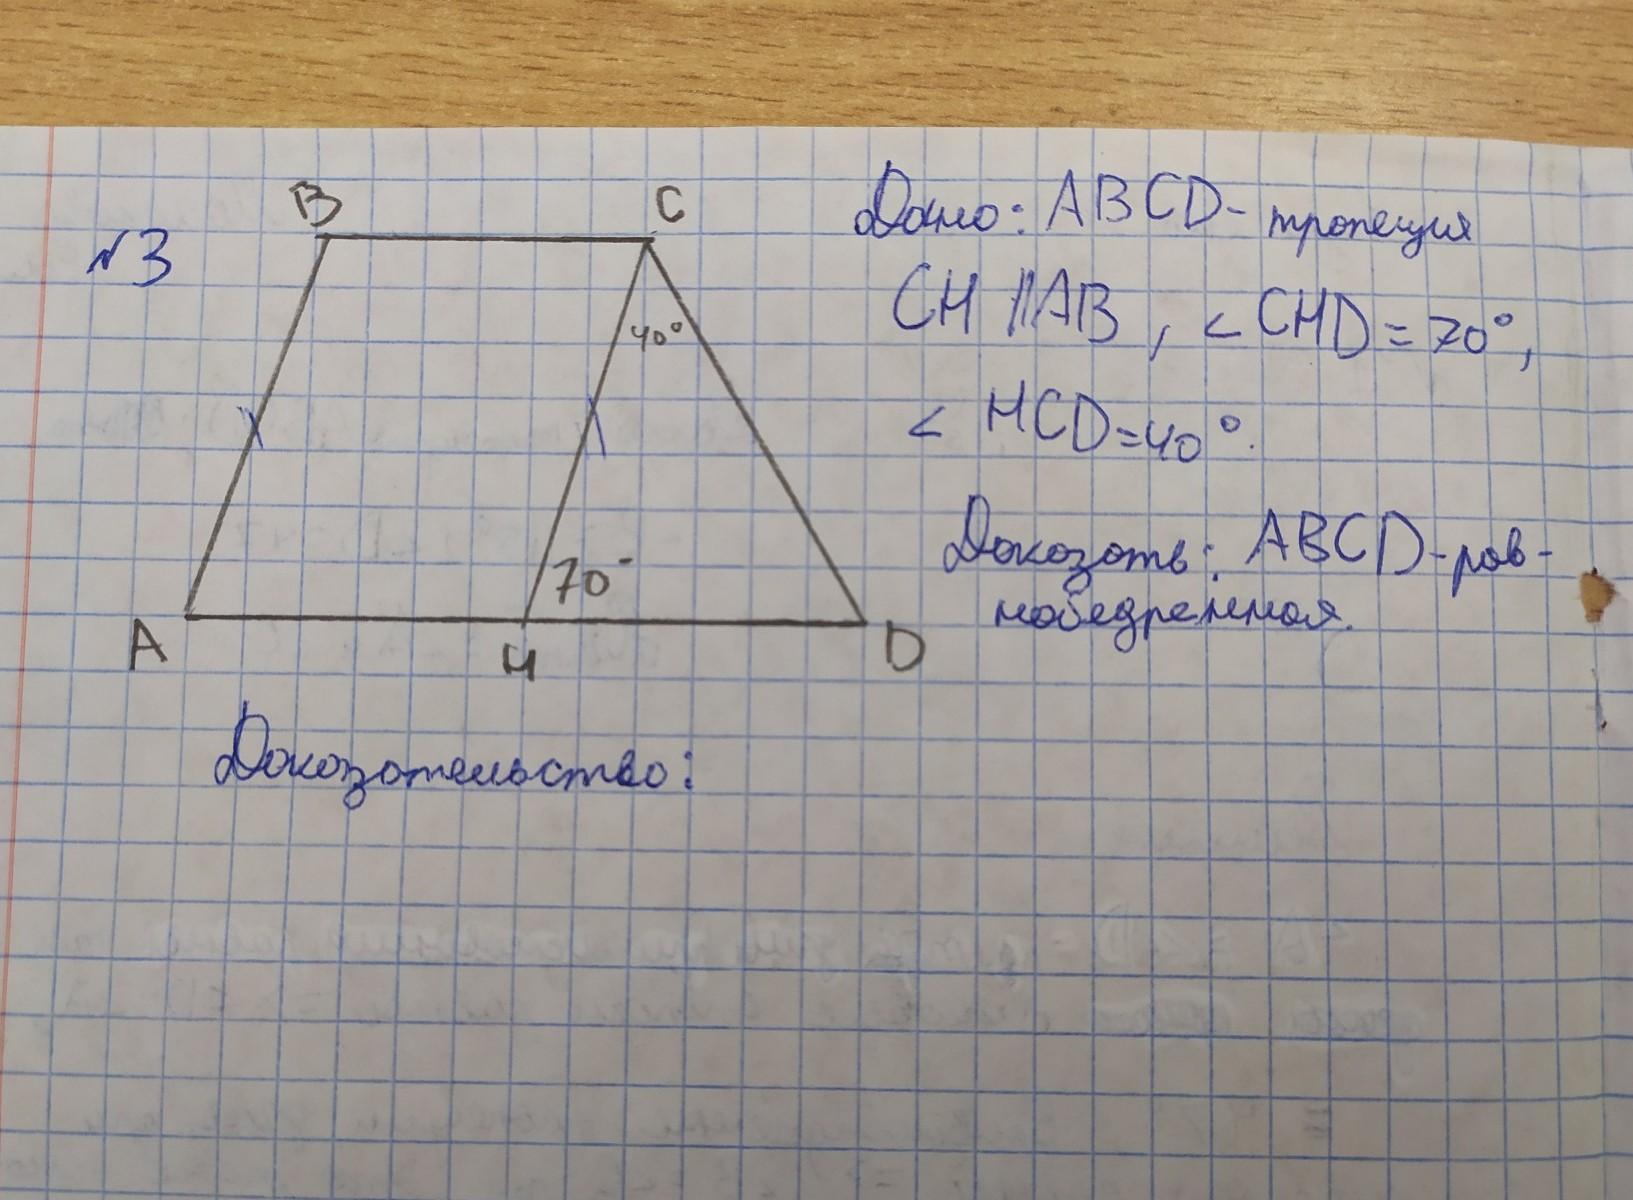 №3
B
C
40°
70°
A
H
D
Дано: ABCD - трапеция
CH || AB, < CHD = 70°,
< HCD = 40°.
Доказать: ABCD - рав-
нобедренная.
Доказательство: